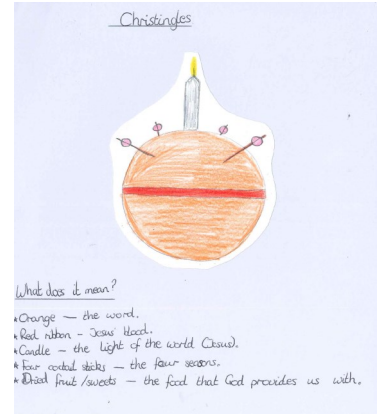 Christingles
What does it mean?
★Orange — the word.
★Red ribbon - Jesus' blood.
★Candle — the light of the world (Jesus).
★Four coctail sticks — the four seasons.
★Dried fruit/sweets — the food that God provides us with.